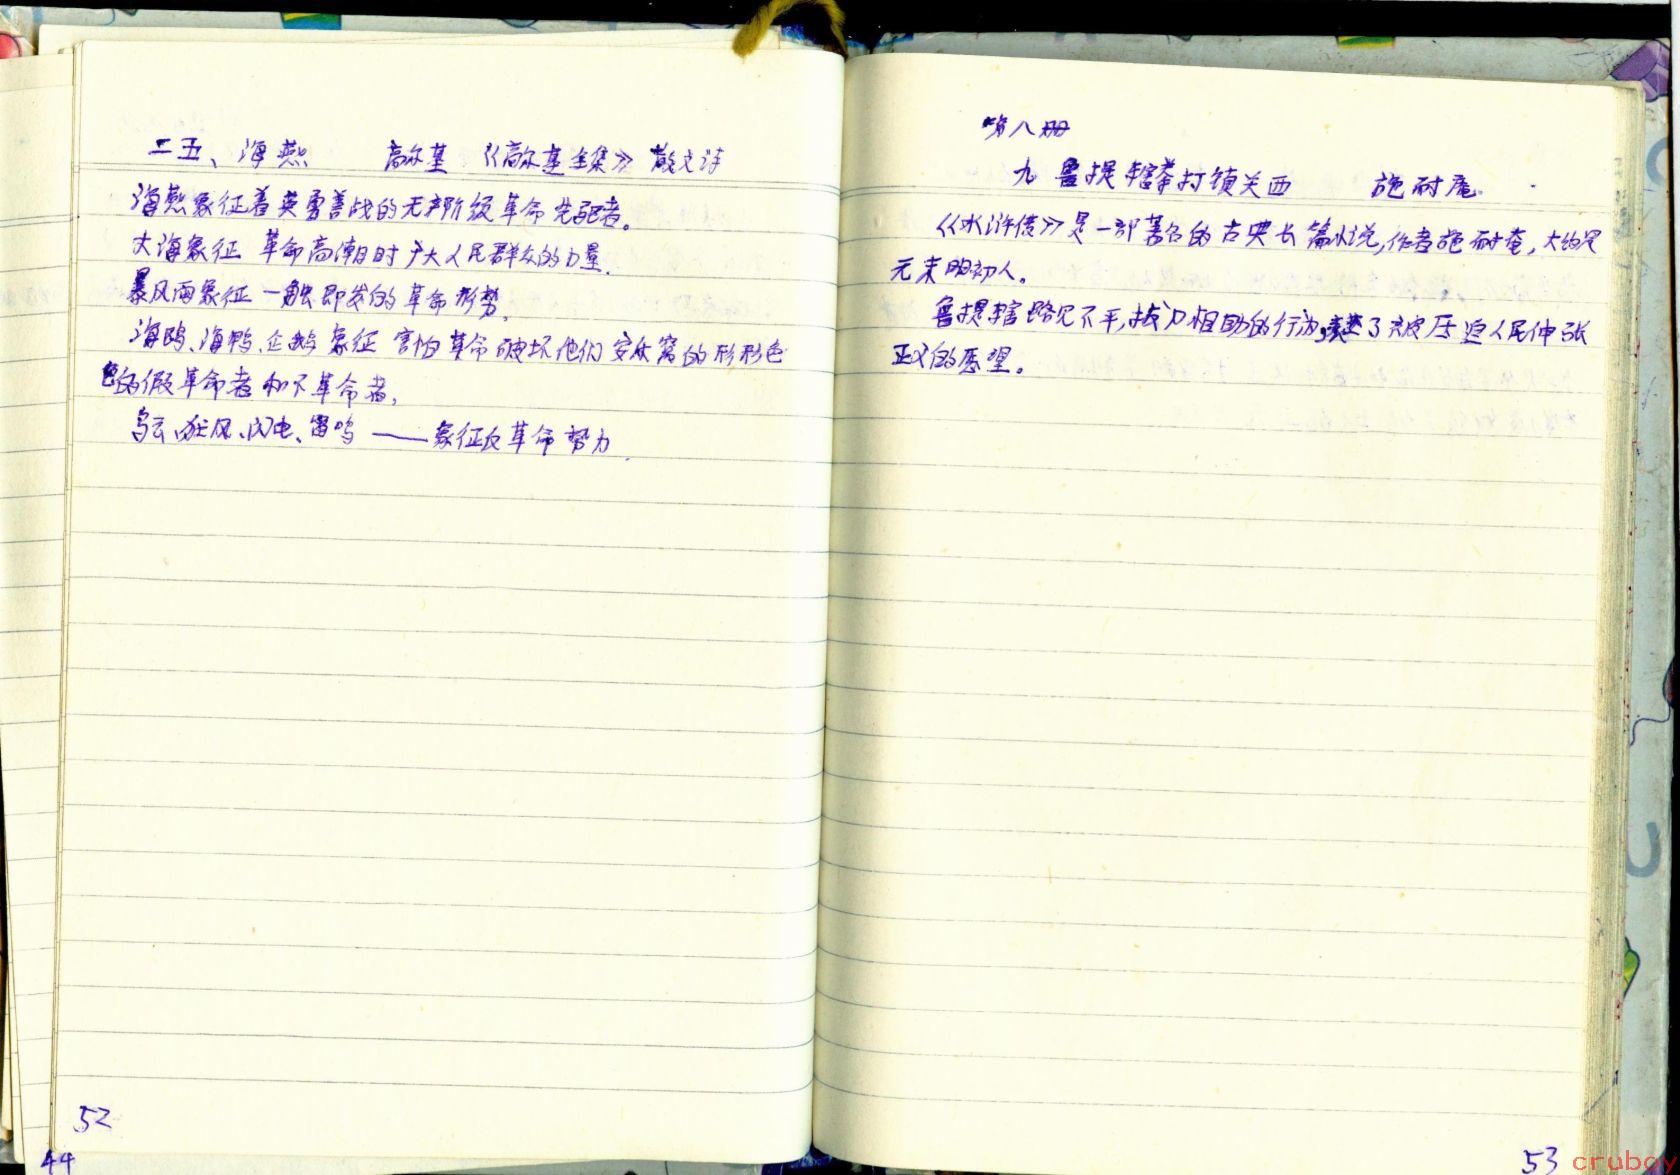 二五、海燕 高尔基 《高尔基全集》 散文诗
海燕象征着英勇善战的无产阶级革命先驱者。
大海象征 革命高潮时广大人民群众的力量.
暴风雨象征 一触即发的革命形势.
海鸥、海鸭、企鹅 象征 害怕革命破坏他们安乐窝的形形色
色的假革命者和不革命者,
乌云、狂风、闪电、雷鸣 —— 象征反革命势力.
52
44
第八册
九 鲁提辖拳打镇关西 施耐庵
《水浒传》是一部著名的古典长篇小说,作者施耐庵,大约是
元末明初人。
鲁提辖路见不平,拔刀相助的行为,表达了被压迫人民伸张
正义的愿望。
53
cruboy